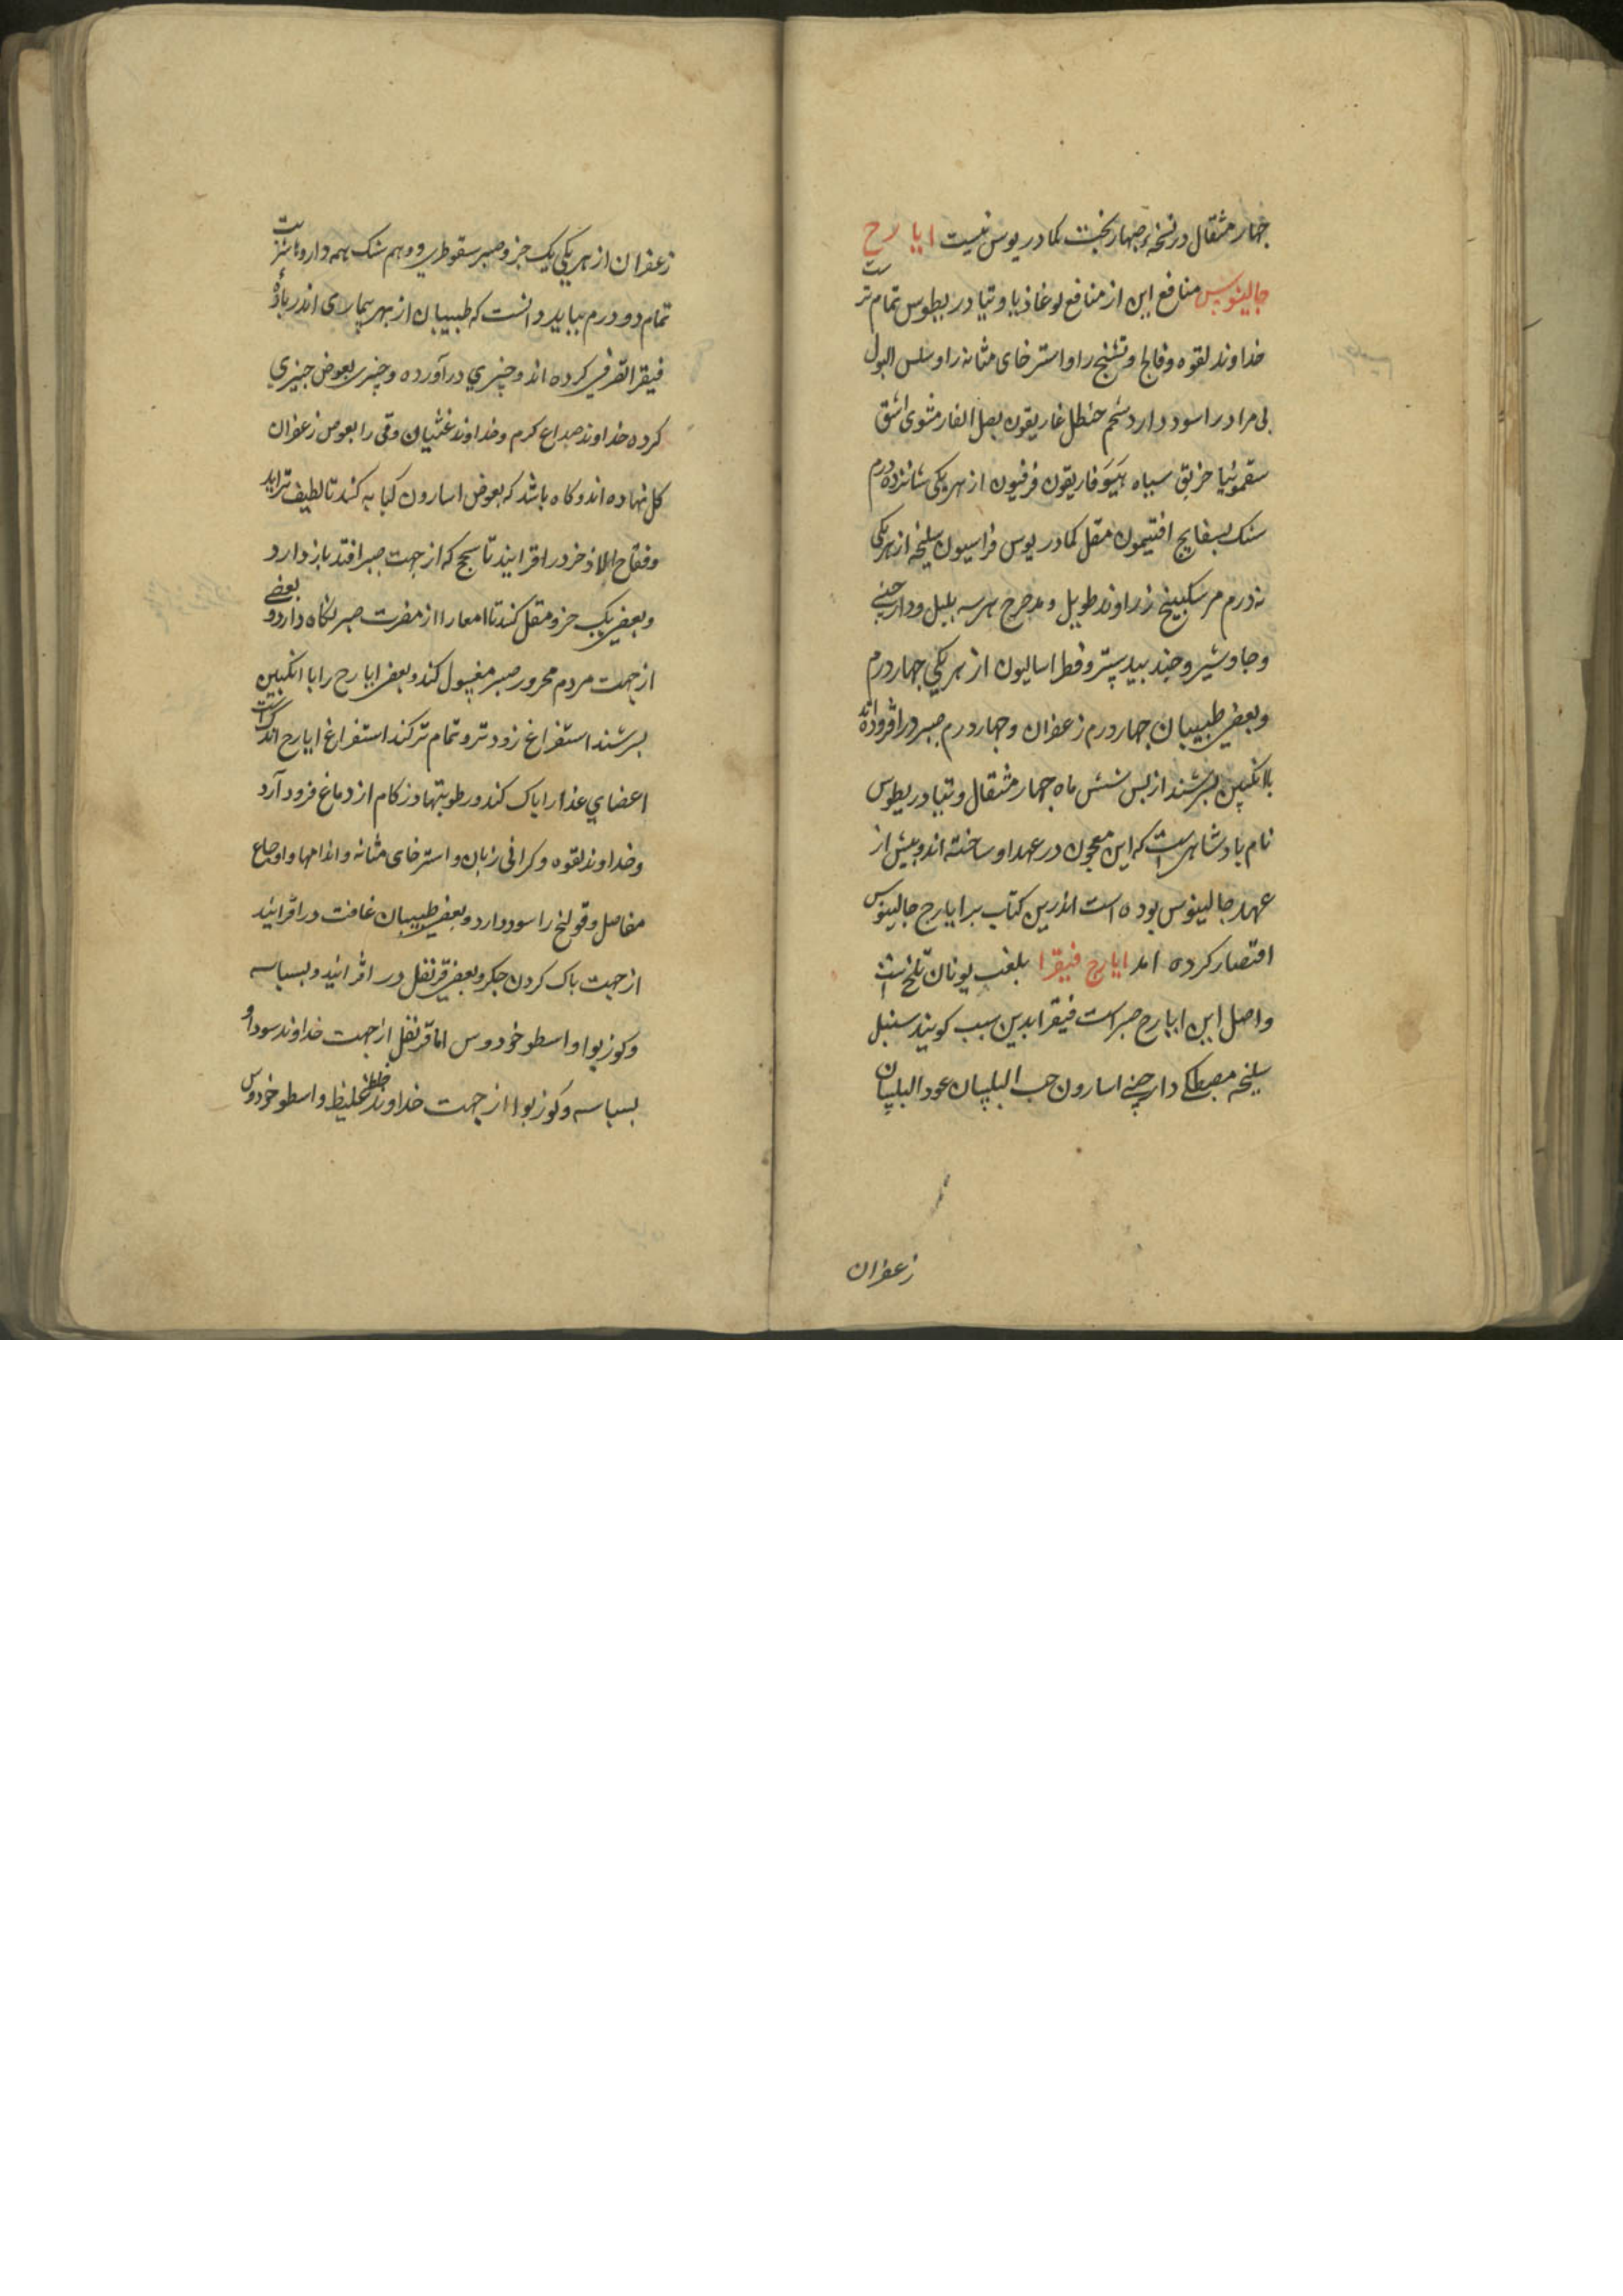 چهار مثقال در نسخهٔ چهاربخت کمادریوس نیست ایا رج
جالینوس منافع این از منافع لوغاذیا و تیادریطوس تمام ترست
خداوند لقوه و فالج و تشنج را و استرخای مثانه را و سلس البول
بی مراد را سود دارد شحم حنظل غاریقون بصل الفار مشوی اشق
سقمونیا خربق سیاه هیوفاریقون فرفیون از هر یکی شانزده درم
سنک بسفایج افتیمون مقل کمادریوس فراسیون سلیخه از هر یکی
نه درم مر سکبینج زراوند طویل و مدحرج هر سه بلبل و دارچینی
و جاوشیر و جندبیدستر و فطراسالیون از هر یکی چهار درم
و بعضی طبیبان چهار درم زعفران و چهار درم صبر درافزوده اند
با انکبین بسرشند از بس شش ماه چهار مثقال و تیادریطوس
نام بادشاهیست که این معجون در عهد او ساخته اند و بیش از
عهد جالینوس بوده است اندرین کتاب بر ایارج جالینوس
اقتصار کرده اند ایارج فیقرا بلغت یونان تلخ است
و اصل این ایارج صبر است فیقرا بدین سبب کویند سنبل
سلیخه مصطکی دارچینی اسارون حب البلسان عود البلسان
زعفران
زعفران از هر یکی یک جزو صبر سقوطری دو هم سنک همه داروها شربت
تمام دو درم بباید دانست که طبیبان از بهر بیماری اندر یارهٔ
فیقرا تصرفی کرده اند و چیزی درآورده و چیزی بعوض چیزی
کرده خداوند صداع کرم و خداوند غثیان و قی را بعوض زعفران
کل نهاده اند و کاه باشد که بعوض اسارون کبابه کنند تا لطیف تر آید
و فقاح الاذخر درافزایند تا سحج که از جهت صبر افتد باز دارد
و بعضی یک جزو مقل کنند تا امعا را از مضرت صبر نکاه دارد و بعضی
از جهت مردم محرور صبر مغسول کنند و بعضی ایارج را با انکبین
بسرشند استفراغ زودتر و تمام تر کند استفراغ ایارج اندک است
اعضای غذا را باک کند و رطوبتها و زکام از دماغ فرود آرد
و خداوند لقوه و کرانی زبان و استرخای مثانه و اندامها و اوجاع
مفاصل و قولنج را سود دارد و بعضی طبیبان غافت درافزایند
از جهت باک کردن جکر و بعضی قرنفل درافزایند و بسباسه
و کوزبوا و اسطوخودوس اما قرنفل از جهت خداوند سودا و
بسباسه و کوزبوا از جهت خداوند خلط غلیظ و اسطوخودوس